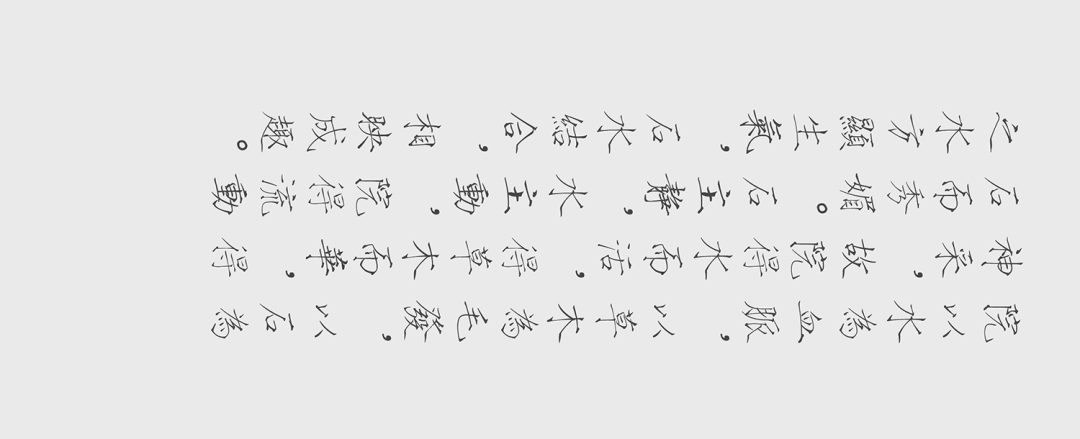 院以水為血脈，以草木為毛發，以石為
神采，故院得水而活，得草木而華，得
石而秀媚。石主靜，水主動，院得流動
之水方顯生氣，石水結合，相映成趣。